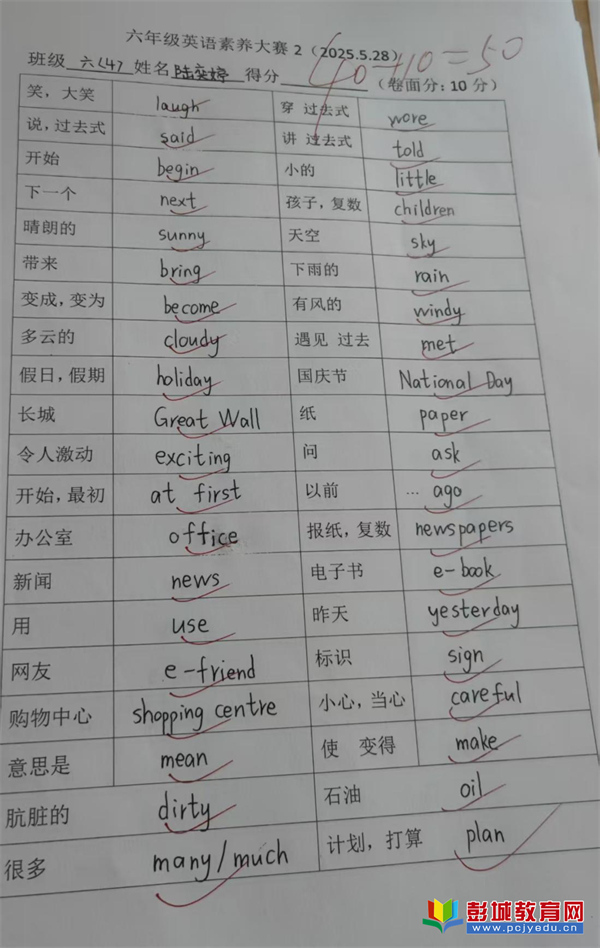 六年级英语素养大赛 2（2025.5.28）
40+10=50
班级 六(4) 姓名 陆奕婷 得分 （卷面分：10 分）
笑，大笑 laugh 穿 过去式 wore
说，过去式 said 讲 过去式 told
开始 begin 小的 little
下一个 next 孩子，复数 children
晴朗的 sunny 天空 sky
带来 bring 下雨的 rain
变成，变为 become 有风的 windy
多云的 cloudy 遇见 过去 met
假日，假期 holiday 国庆节 National Day
长城 Great Wall 纸 paper
令人激动 exciting 问 ask
开始，最初 at first 以前 … ago
办公室 office 报纸，复数 newspapers
新闻 news 电子书 e-book
用 use 昨天 yesterday
网友 e-friend 标识 sign
购物中心 shopping centre 小心，当心 careful
意思是 mean 使 变得 make
肮脏的 dirty 石油 oil
很多 many/much 计划，打算 plan
彭城教育网
www.pcjyedu.cn